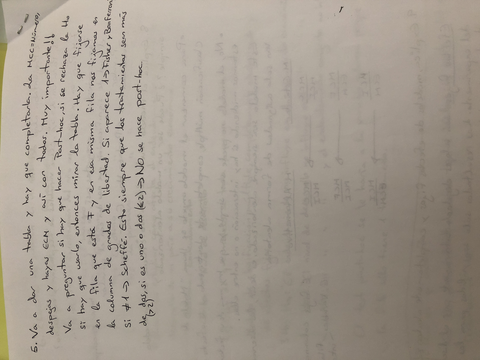 5. Va a dar una tabla y hay que completarla. La MCCONúmeros,
despejas y hayas ECM y así con todos. Muy importante!!
Va a preguntar si hay que hacer Post-hoc, si se rechaza la H₀
si hay que usarlo, entonces mirar la tabla. Hay que fijarse
en la fila que está F y en esa misma fila nos fijamos en
la columna de grados de libertad. Si aparece 1 → Fisher y Bonferroni
Si ≠ 1 → Scheffé. Esto siempre que los tratamientos sean más
de dos, si es uno o dos (≤2) → NO se hace post-hoc.
(>2)